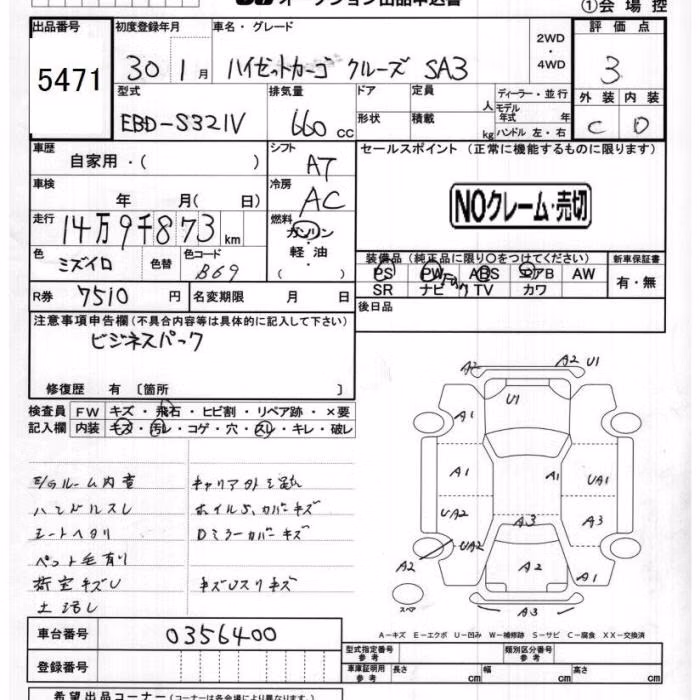 オークション出品申込書
①会場控
出品番号 初度登録年月 車名・グレード 2WD ・ 4WD 評価点
5471 30 1月 ハイゼットカーゴ クルーズ SA3 3
型式 排気量 ドア 定員 人 ディーラー・並行 外装 内装
EBD-S321V 660cc 形状 積載 kg モデル年式 年 ハンドル 左・右 C D
車歴 自家用・( ) シフト AT セールスポイント (正常に機能するものに限ります)
車検 年 月( 日) 冷房 AC NOクレーム・売切
走行 14万9千873km 燃料 ガソリン・軽油・
色 ミズイロ 色替 色コード B69 装備品 (純正品に限り○をつけてください) 新車保証書
PS PW ABS エアB AW 有・無
SR ナビ TV カワ
R券 7510円 名変期限 月 日 後日品
注意事項申告欄(不具合内容等は具体的に記入して下さい)
ビジネスパック
修復歴 有 〔箇所 〕
検査員記入欄 FW キズ・飛石・ヒビ割・リペア跡・×要
内装 キズ・汚レ・コゲ・穴・スレ・キレ・破レ
ハンドルスレ
シートヘタリ
ペット毛有り
土汚し
ホイルS,カバーキズ
Dミラーカバーキズ
キズUスリキズ
A2 A2 U1
U1
A1
A1 A1 UA1
UA2 A3 A3
UA2 A2
A2 A1
スペア A3
A-キズ E-エクボ U-凹み W-補修跡 S-サビ C-腐食 XX-交換済
車台番号 0356400
登録番号
型式指定番号 参考 類別区分番号 参考
車庫証明用 参考 長さ cm 幅 cm 高さ cm
希望出品コーナー(コーナーは各会場により異なります)